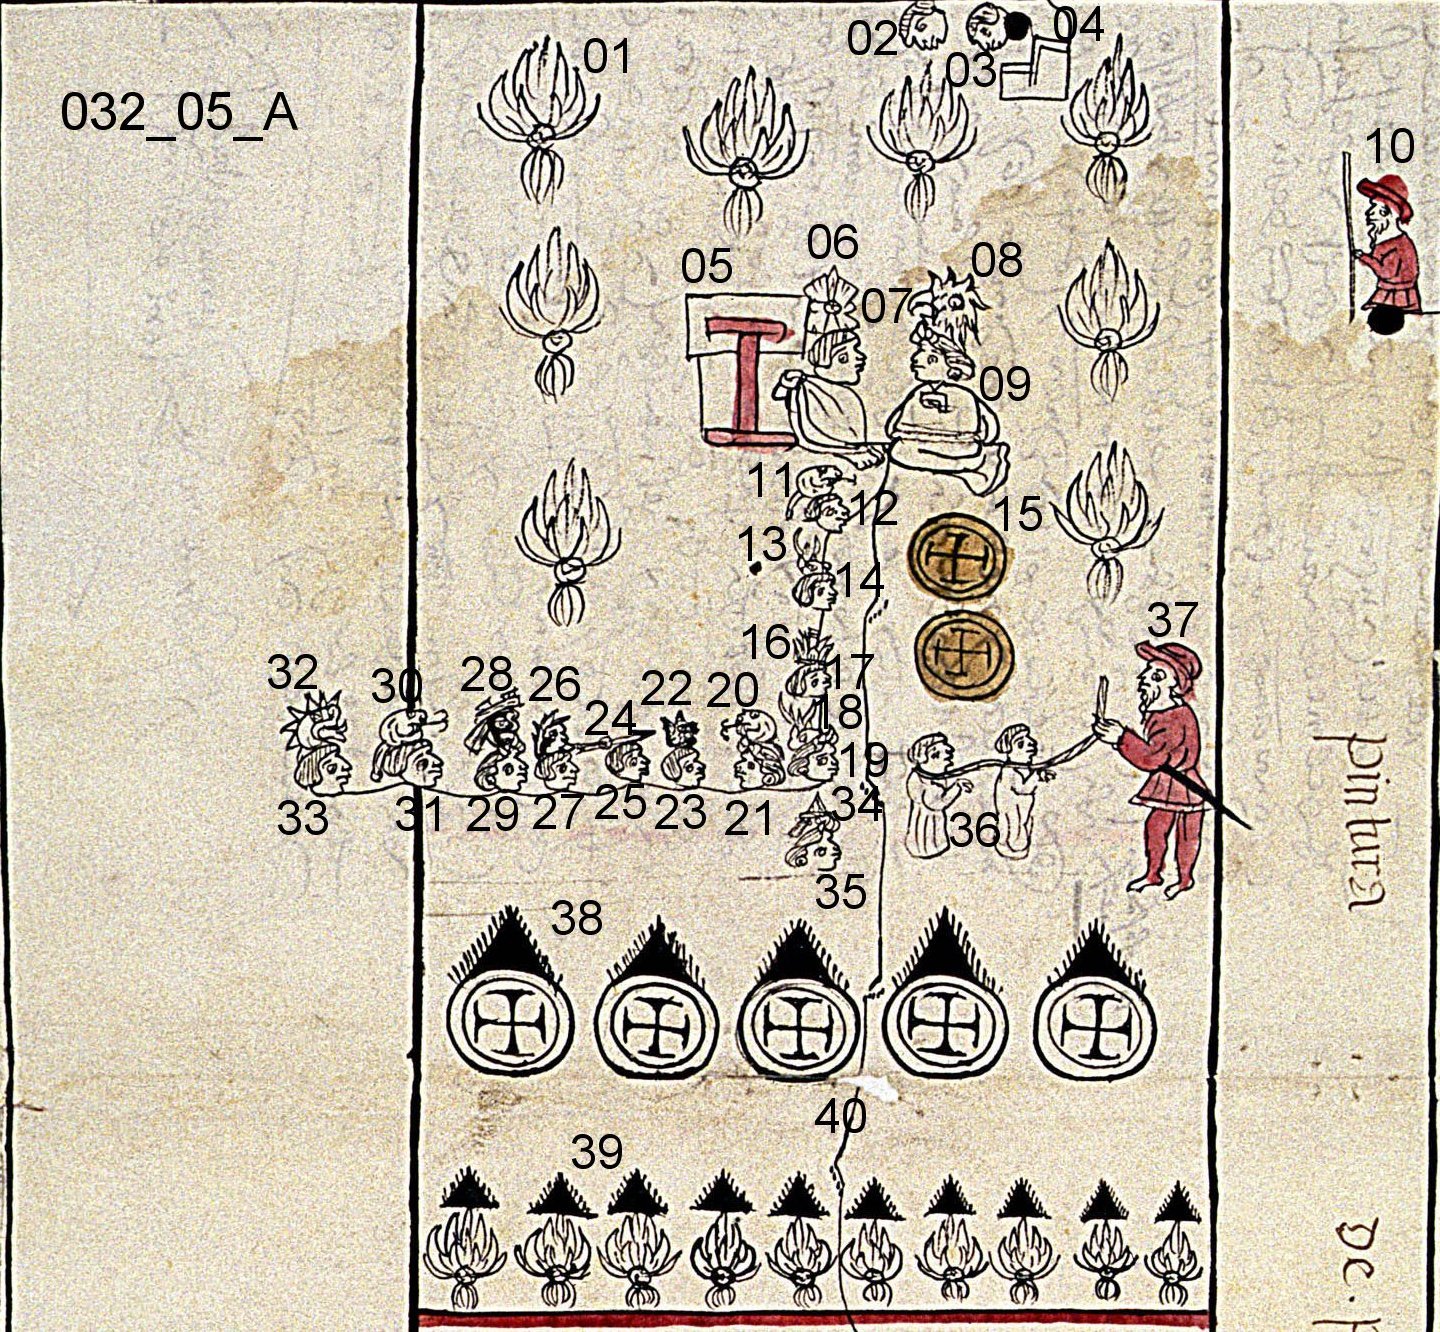 01
02
04
03
032_05_A
10
06
05
08
07
09
11
12
15
13
14
37
16
17
32
30
28
26
22
20
24
18
19
33
31
29
27
25
23
21
34
36
35
38
40
39
pintura
De